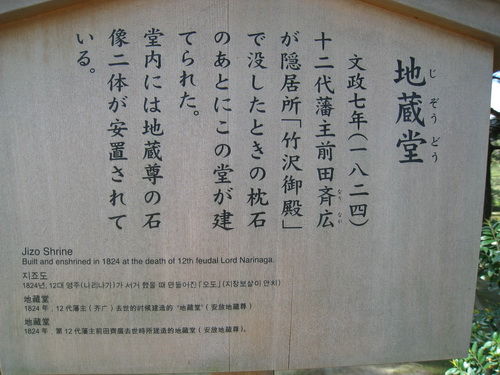 地蔵堂
じ ぞう どう
文政七年(一八二四)
十二代藩主前田斉広
なり なが
が隠居所「竹沢御殿」
で没したときの枕石
のあとにこの堂が建
てられた。
堂内には地蔵尊の石
像二体が安置されて
いる。
Jizo Shrine
Built and enshrined in 1824 at the death of 12th feudal Lord Narinaga.
지죠도
1824년, 12대 영주(나리나가)가 서거 했을 때 만들어진 「오도」(지장보살이 안치)
地藏堂
1824 年，12 代藩主（齐广）去世的时候建造的 “地藏堂”（安放地藏尊）
地藏堂
1824 年，第 12 代藩主前田齊廣去世時所建造的地藏堂（安放地藏尊）。